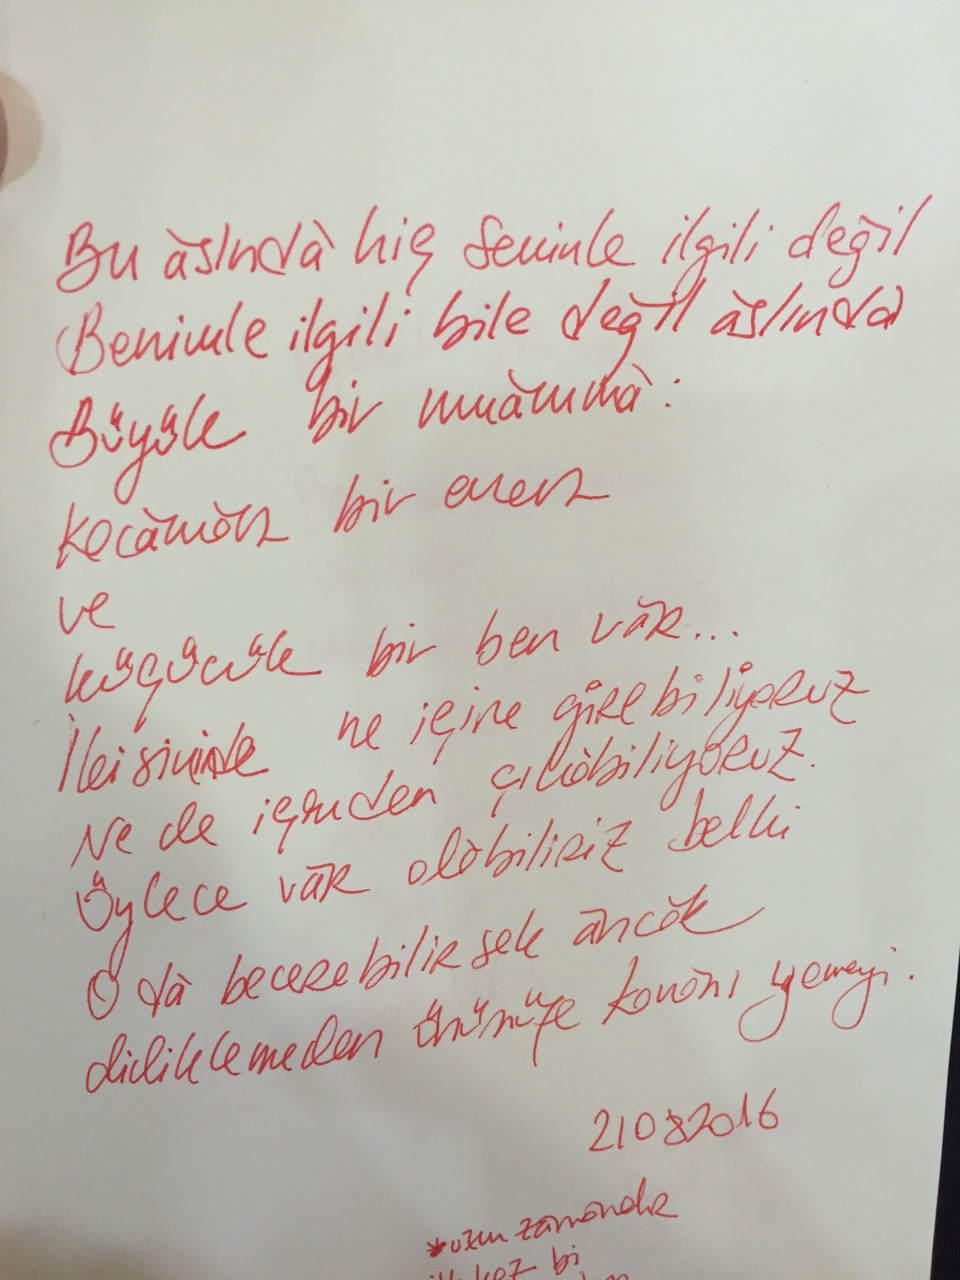 Bu aslında hiç seninle ilgili değil
Benimle ilgili bile değil aslında
Büyük bir muamma:
Kocaman bir evren
ve
küçücük bir ben var...
İkisinin de ne içine girebiliyoruz
Ne de içinden çıkabiliyoruz.
Öylece var olabiliriz belki
O da becerebilirsek ancak
didiklemeden önümüze konanı yemeyi.
21082016
*uzun zamandır
ilk kez bi